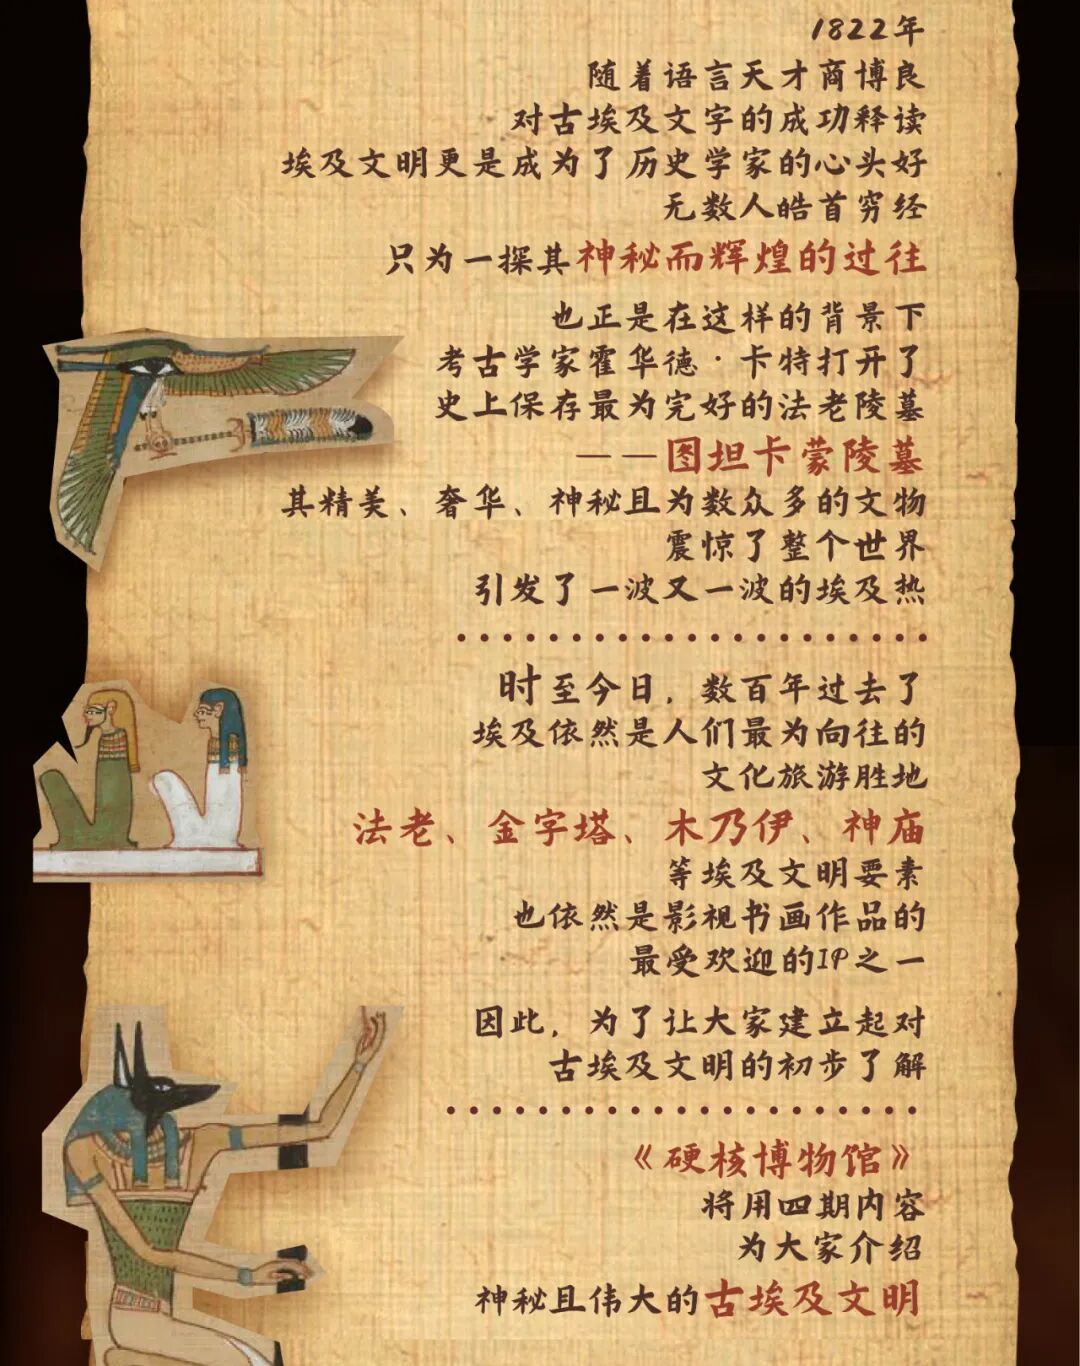 1822年
随着语言天才商博良
对古埃及文字的成功释读
埃及文明更是成为了历史学家的心头好
无数人皓首穷经
只为一探其神秘而辉煌的过往
也正是在这样的背景下
考古学家霍华德·卡特打开了
史上保存最为完好的法老陵墓
——图坦卡蒙陵墓
其精美、奢华、神秘且为数众多的文物
震惊了整个世界
引发了一波又一波的埃及热
时至今日，数百年过去了
埃及依然是人们最为向往的
文化旅游胜地
法老、金字塔、木乃伊、神庙
等埃及文明要素
也依然是影视书画作品的
最受欢迎的IP之一
因此，为了让大家建立起对
古埃及文明的初步了解
《硬核博物馆》
将用四期内容
为大家介绍
神秘且伟大的古埃及文明